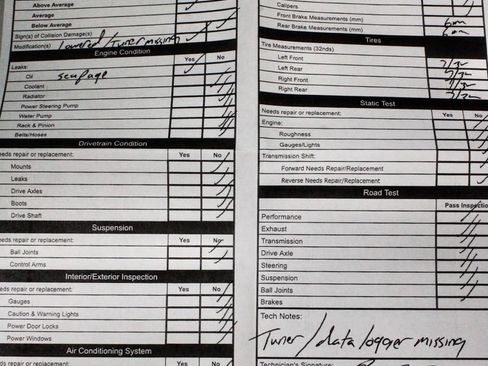 Above Average
Average
Below Average
Sign(s) of Collision Damage(s)
Modification(s) lowered / Tuner missing
Engine Condition
Leaks: Yes No
Oil seepage
Coolant
Radiator
Power Steering Pump
Water Pump
Rack & Pinion
Belts/Hoses
Drivetrain Condition
eeds repair or replacement: Yes No
Mounts
Leaks
Drive Axles
Boots
Drive Shaft
Suspension
eeds repair or replacement: Yes No
Ball Joints
Control Arms
Interior/Exterior Inspection
eeds repair or replacement: Yes No
Gauges
Caution & Warning Lights
Power Door Locks
Power Windows
Air Conditioning System
eds repair or replacement: Yes No
Calipers
Front Brake Measurements (mm) 6mm
Rear Brake Measurements (mm) 6mm
Tires
Tire Measurements (32nds)
Left Front 7/32
Left Rear
Right Front
Right Rear
Static Test
Needs repair or replacement: Yes No
Engine:
Roughness
Gauges/Lights
Transmission Shift:
Forward Needs Repair/Replacement
Reverse Needs Repair/Replacement
Road Test
Pass Inspectio
Performance
Exhaust
Transmission
Drive Axle
Steering
Suspension
Ball Joints
Brakes
Tech Notes:
Tuner/data logger missing
Technician's Signature: